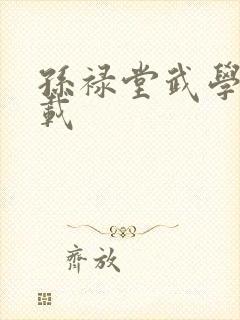 孫祿堂武學
載
齊放